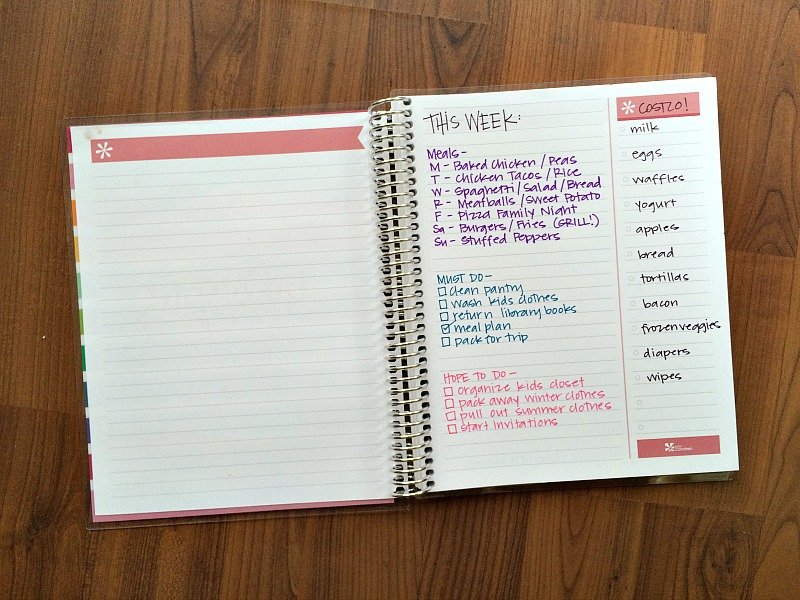 THIS WEEK:
Meals-
M - Baked Chicken / Peas
T - Chicken Tacos / Rice
W - Spaghetti / Salad / Bread
R - Meatballs / Sweet Potato
F - Pizza Family Night
Sa - Burgers / Fries (GRILL!)
Su - Stuffed Peppers
MUST DO-
clean pantry
wash kids clothes
return library books
meal plan
pack for trip
HOPE TO DO-
organize kids closet
pack away winter clothes
pull out summer clothes
start invitations
COSTCO!
milk
eggs
waffles
yogurt
apples
bread
tortillas
bacon
frozen veggies
diapers
wipes
condren